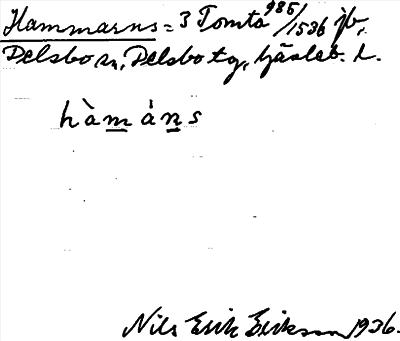 Hammarns = 3 Tomta 985/1536 jb,
Delsbo sn, Delsbo tg, Gävleb. l.
hàmáns
Nils Erik Erikson 1936.